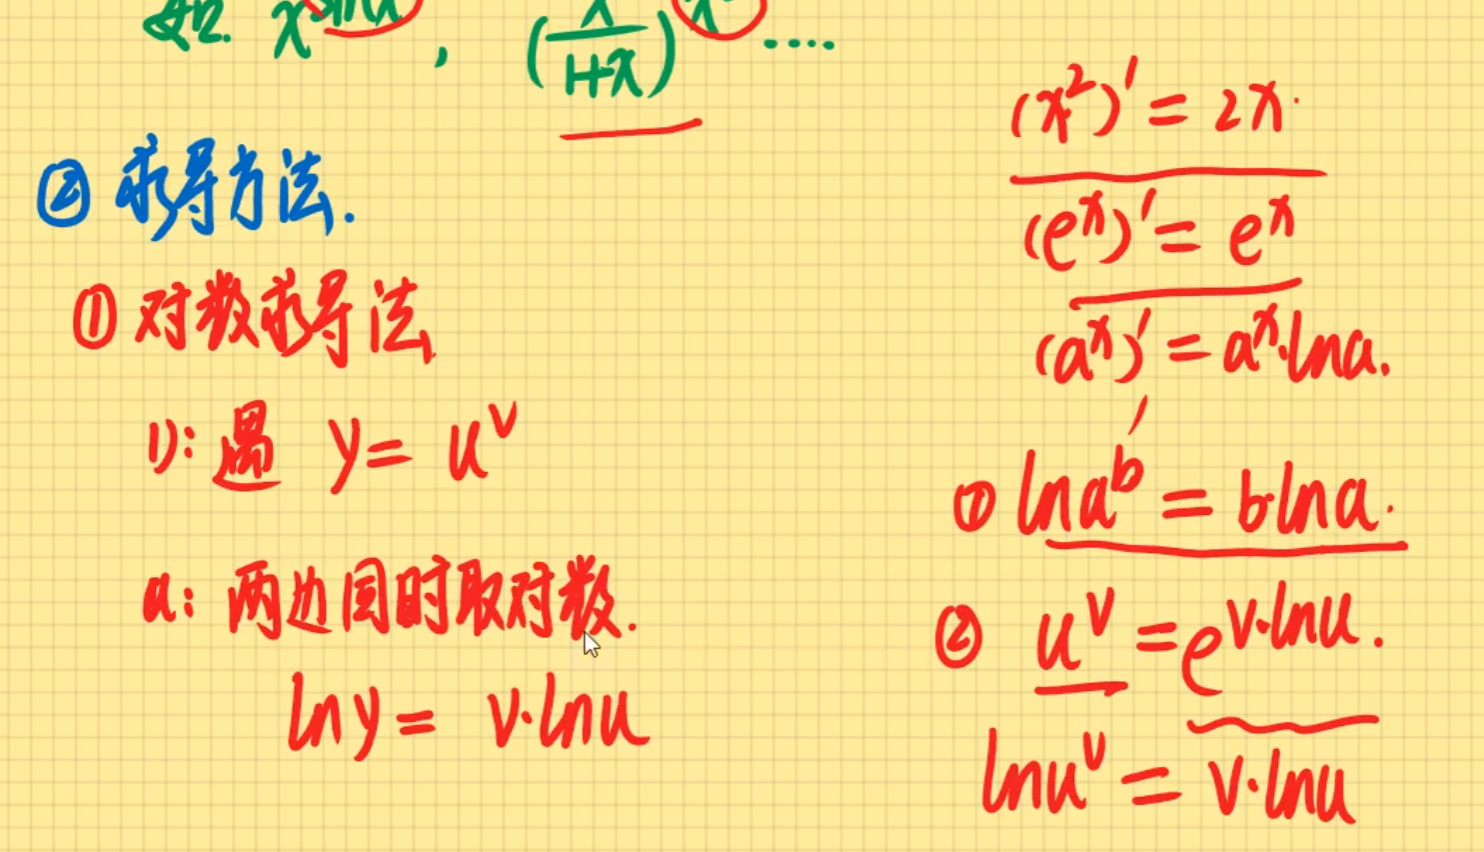 如. x^sinx , (x/1+x)^x ....
② 求导方法.
① 对数求导法
1): 遇 y = u^v
a: 两边同时取对数.
ln y = v·ln u
(x²)' = 2x.
(e^x)' = e^x
(a^x)' = a^x·ln a.
① ln a^b = b·ln a.
② u^v = e^v·ln u.
ln u^v = v·ln u